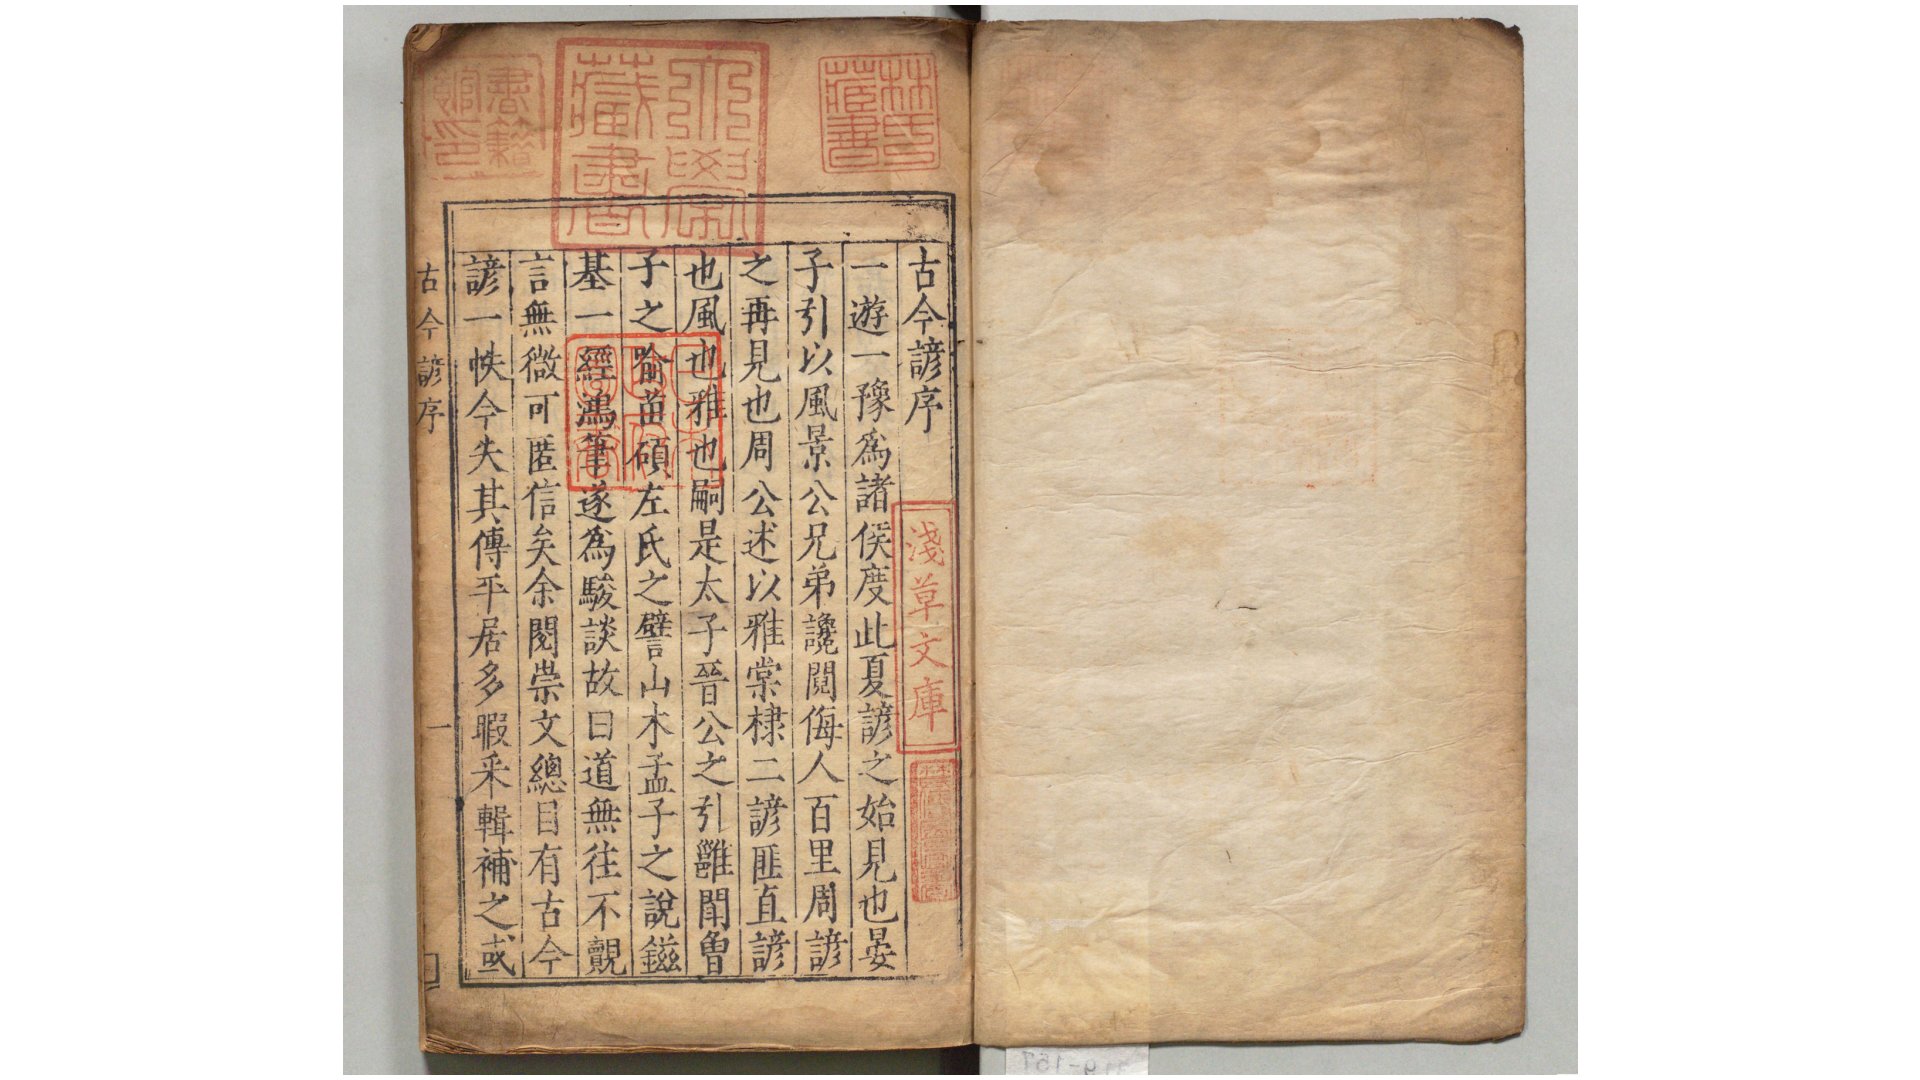 古今諺序
一遊一豫爲諸侯度此夏諺之始見也晏
子引以風景公兄弟讒鬩侮人百里周諺
之再見也周公述以雅棠棣二諺匪直諺
也風也雅也嗣是太子晉公之引雝閈魯
子之喻苗碩左氏之譬山木孟子之說鎡
基一經鴻筆遂爲駿談故曰道無往不覿
言無微可匿信矣余閱崇文總目有古今
諺一帙今失其傳平居多暇采輯補之或
古今諺序
一
林氏藏書
大學藏書
書籍館印
日本政府圖書
淺草文庫